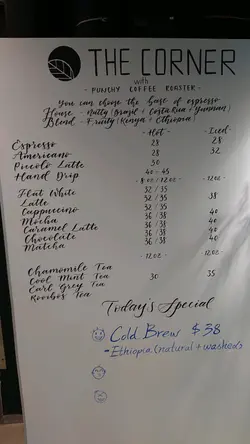 THE CORNER
with
- PUNCHY COFFEE ROASTER -
You can choose the base of espresso
House - Nutty (Brazil + Costa Rica + Yunnan)
Blend - Fruity (Kenya + Ethiopia)
- Hot - - Iced -
Espresso 28 28
Americano 28 32
Piccolo Latte 30
Hand Drip 40 - 45
- 8 oz / 12 oz - - 12 oz -
Flat White 32 / 35
Latte 32 / 35 38
Cappuccino 32 / 35
Mocha 36 / 38 40
Caramel Latte 36 / 38 40
Chocolate 36 / 38 40
Matcha 36 / 38 40
- 12 oz - - 12 oz -
Chamomile Tea
Cool Mint Tea 30 35
Earl Grey Tea
Rooibos Tea
Today's Special
Cold Brew $38
- Ethiopia (natural + washed)